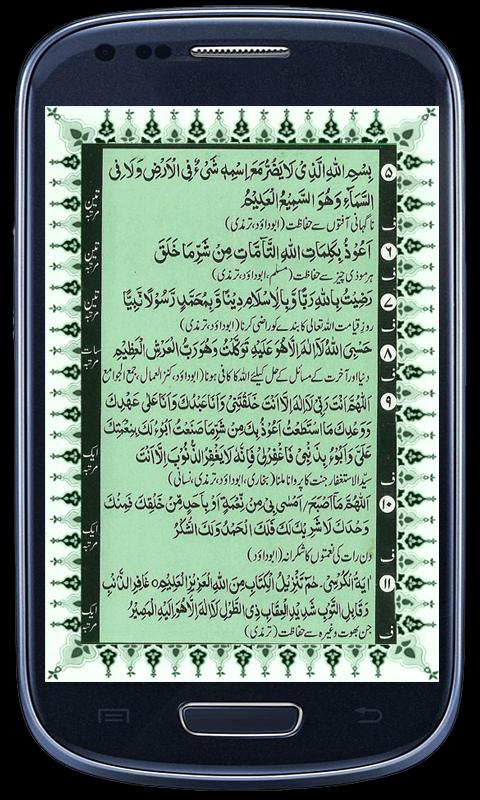 ۵ بِسْمِ اللهِ الَّذِىْ لَا يَضُرُّ مَعَ اِسْمِهٖ شَىْءٌ فِى الْاَرْضِ وَلَا فِى
السَّمَآءِ وَهُوَ السَّمِيْعُ الْعَلِيْمُ
تین مرتبہ
ف ناگہانی آفتوں سے حفاظت (ابوداؤد، ترمذی)
۶ اَعُوْذُ بِكَلِمَاتِ اللهِ التَّآمَّاتِ مِنْ شَرِّ مَا خَلَقَ
تین مرتبہ
ف ہر موذی چیز سے حفاظت (مسلم، ابوداؤد، ترمذی)
۷ رَضِيْتُ بِاللهِ رَبًّا وَّ بِالْاِسْلَامِ دِيْنًا وَّ بِمُحَمَّدٍ رَسُوْلًا نَّبِيًّا
تین مرتبہ
ف روز قیامت اللہ تعالی کا بندے کو راضی کرنا (ابوداؤد، ترمذی)
۸ حَسْبِىَ اللهُ لَا اِلٰهَ اِلَّا هُوَ عَلَيْهِ تَوَكَّلْتُ وَهُوَ رَبُّ الْعَرْشِ الْعَظِيْمِ
سات مرتبہ
ف دنیا اور آخرت کے مسائل کے حل کیلئے اللہ کا کافی ہونا (ابوداؤد، کنزالعمال، جمع الجوامع
۹ اَللّٰهُمَّ اَنْتَ رَبِّىْ لَا اِلٰهَ اِلَّا اَنْتَ خَلَقْتَنِىْ وَاَنَا عَبْدُكَ وَاَنَا عَلٰى عَهْدِكَ
وَوَعْدِكَ مَا اسْتَطَعْتُ اَعُوْذُ بِكَ مِنْ شَرِّ مَا صَنَعْتُ اَبُوْءُ لَكَ بِنِعْمَتِكَ
عَلَىَّ وَاَبُوْءُ بِذَنْبِىْ فَاغْفِرْلِىْ فَاِنَّهٗ لَا يَغْفِرُ الذُّنُوْبَ اِلَّا اَنْتَ
ایک مرتبہ
ف سیّد الاستغفار جنت کا پروانا ملنا (بخاری، ابوداؤد، ترمذی، نسائی)
۱۰ اَللّٰهُمَّ مَآ اَصْبَحَ/اَمْسٰى بِىْ مِنْ نِّعْمَةٍ اَوْ بِاَحَدٍ مِّنْ خَلْقِكَ فَمِنْكَ
وَحْدَكَ لَا شَرِيْكَ لَكَ فَلَكَ الْحَمْدُ وَلَكَ الشُّكْرُ
ایک مرتبہ
ف دن رات کی نعمتوں کا شکرانہ (ابوداؤد)
۱۱ اٰيَةُ الْكُرْسِىْ، حٰمٓ تَنْزِيْلُ الْكِتَابِ مِنَ اللهِ الْعَزِيْزِ الْعَلِيْمِ غَافِرِ الذَّنْبِ
وَقَابِلِ التَّوْبِ شَدِيْدِ الْعِقَابِ ذِى الطَّوْلِ لَا اِلٰهَ اِلَّا هُوَ اِلَيْهِ الْمَصِيْرُ
ایک مرتبہ
ف جن بھوت وغیرہ سے حفاظت (ترمذی)